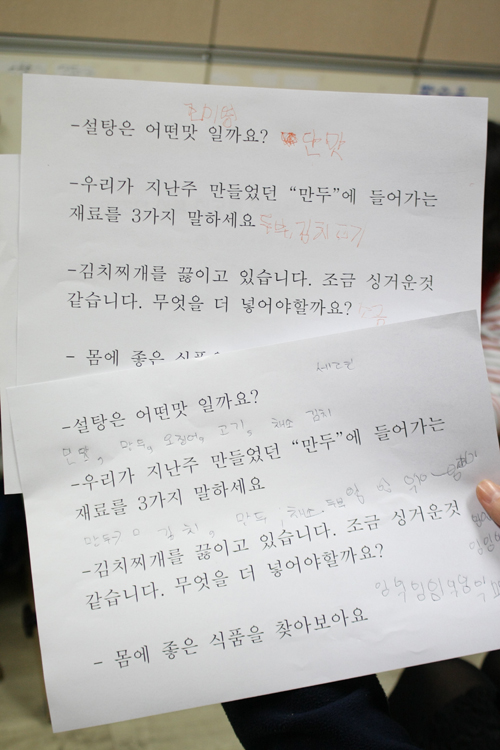 -설탕은 어떤맛 일까요? 단맛
-우리가 지난주 만들었던 “만두”에 들어가는
재료를 3가지 말하세요 두부 김치 고기
-김치찌개를 끓이고 있습니다. 조금 싱거운것
같습니다. 무엇을 더 넣어야할까요?
- 몸에 좋은 식품
-설탕은 어떤맛 일까요?
만두, 오징어, 고기, 채소 김치
-우리가 지난주 만들었던 “만두”에 들어가는
재료를 3가지 말하세요
김치, 만두, 채소
-김치찌개를 끓이고 있습니다. 조금 싱거운것
같습니다. 무엇을 더 넣어야할까요?
- 몸에 좋은 식품을 찾아보아요